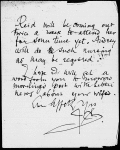 Reid will be coming out
twice a week to attend her
for some time yet. Audrey
will do such nursing
as may be required.
I hope I will get a
word from you to-morrow
morning's post with better
news about your wife.
Yrs